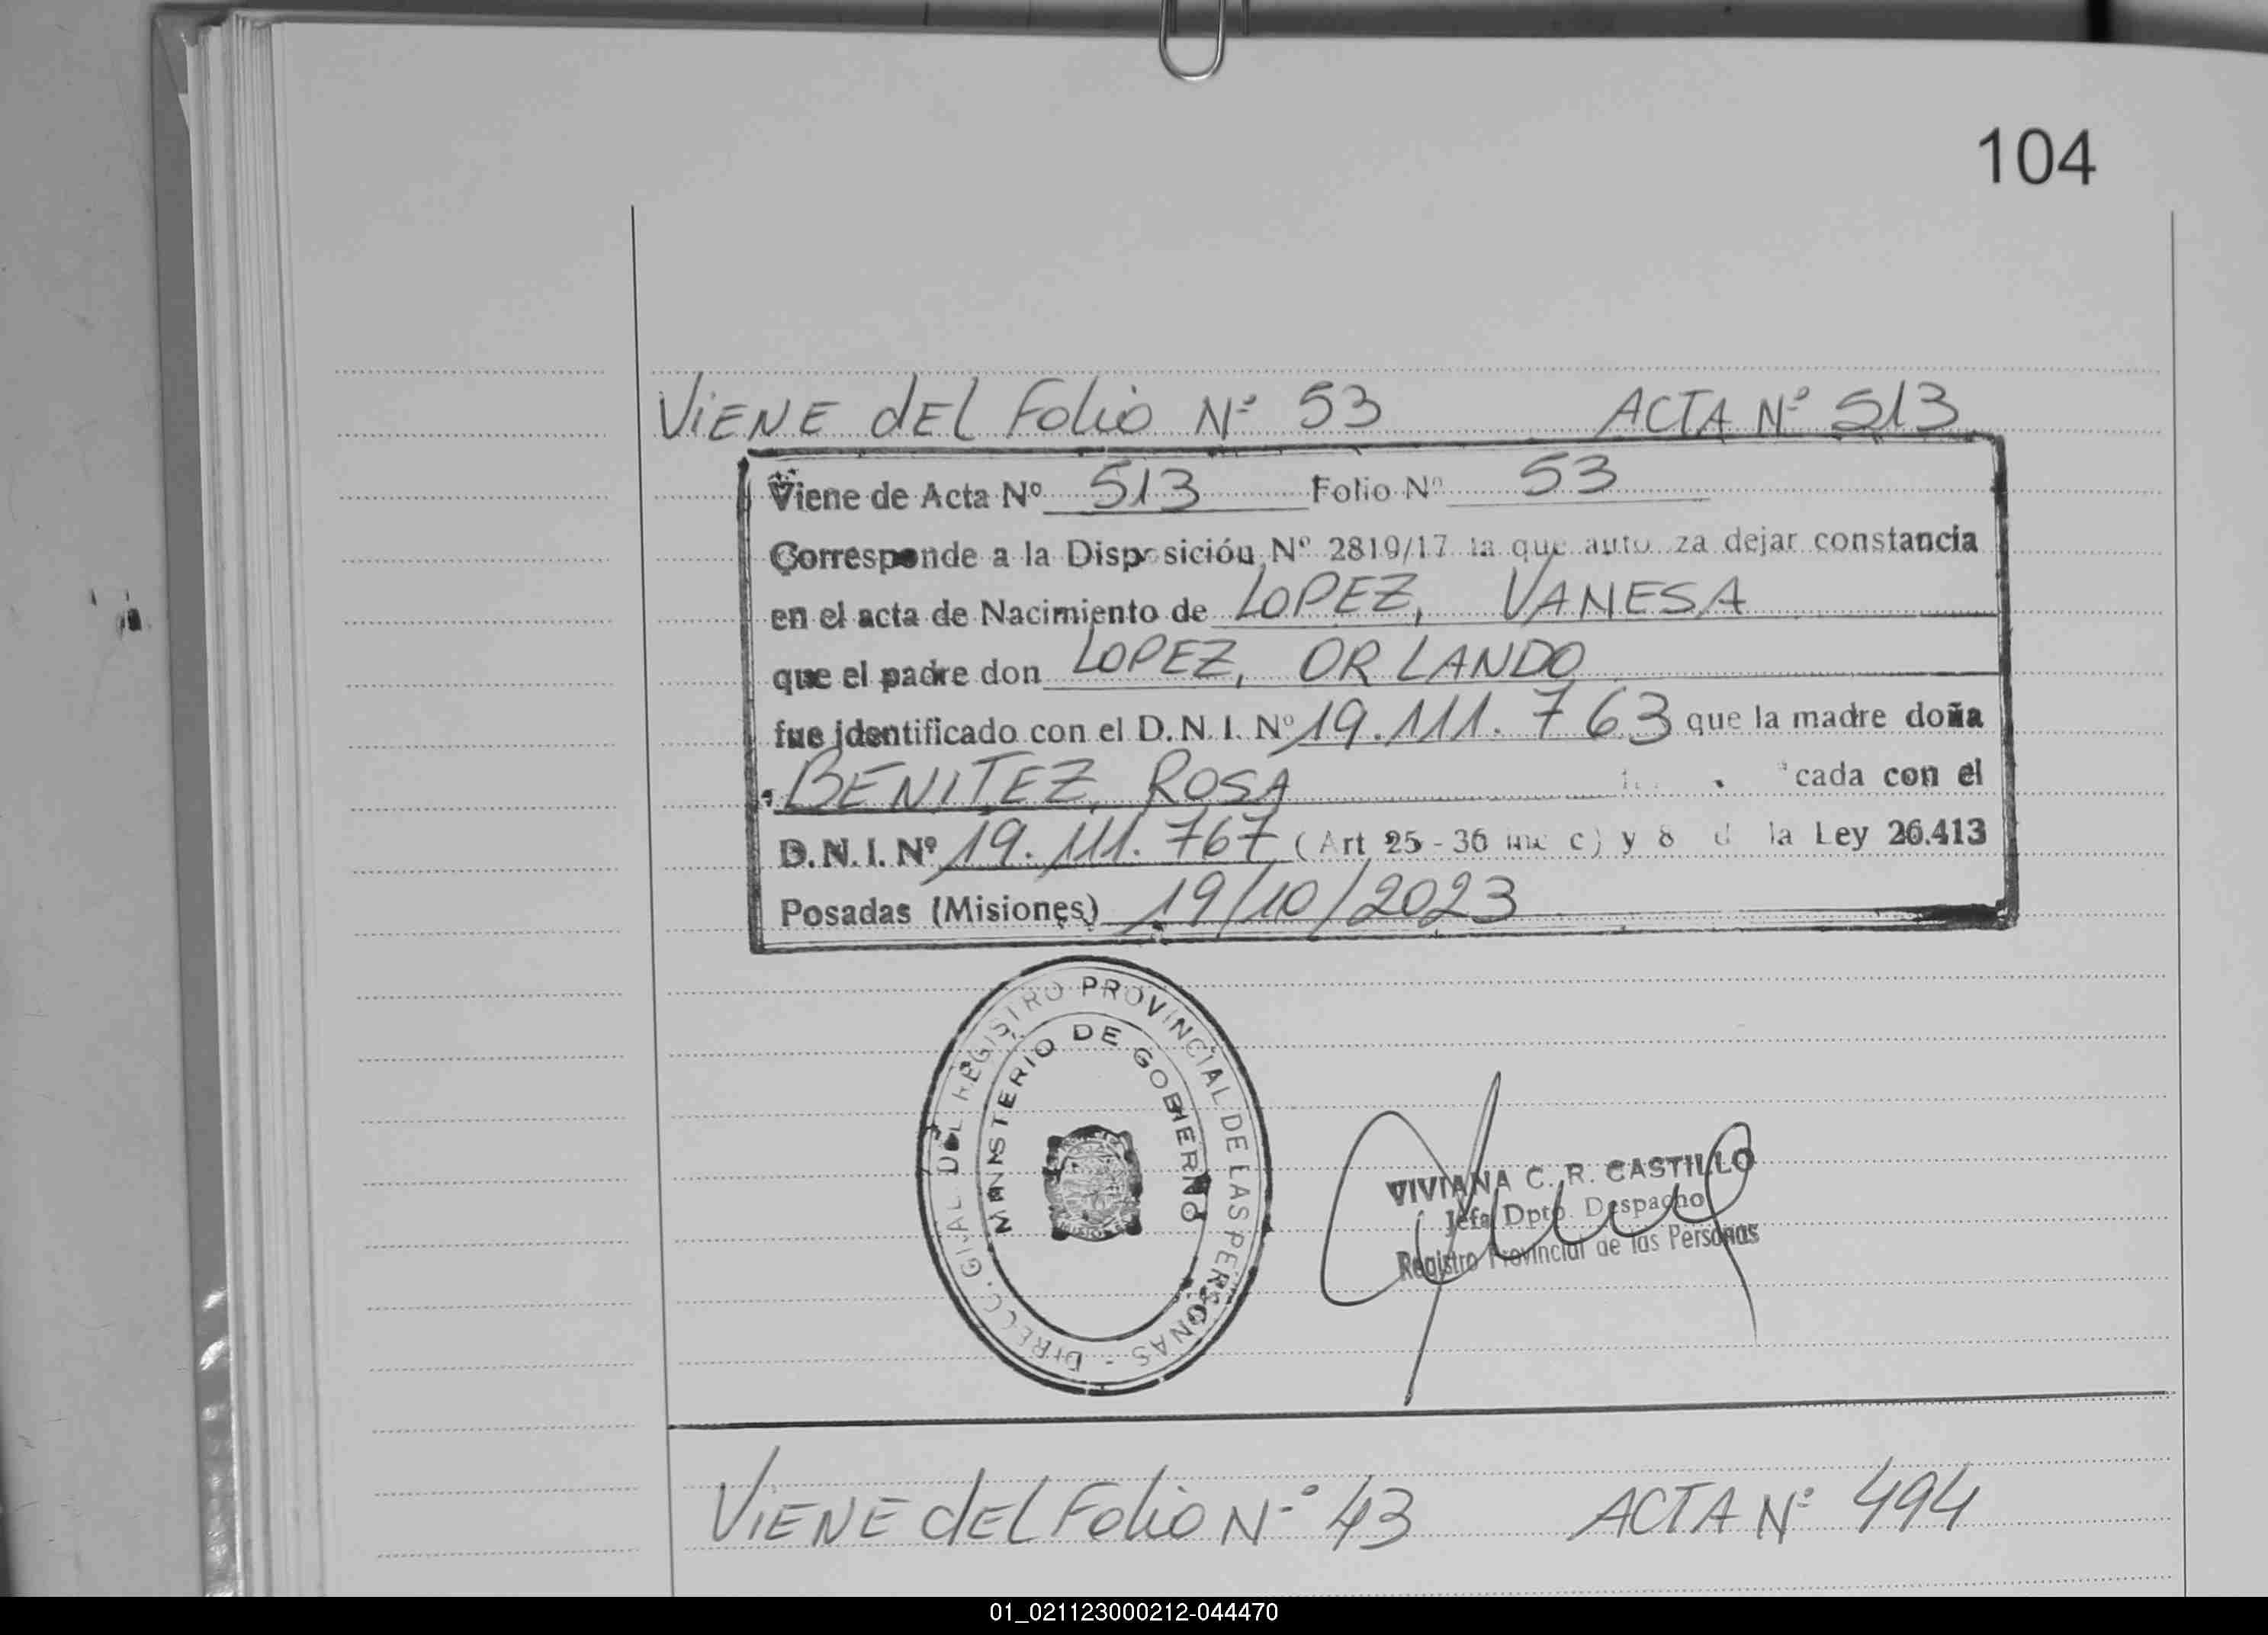 104
VIENE dEL Folio Nº 53 ACTA Nº 513
Viene de Acta Nº 513 Folio Nº 53
Corresponde a la Disposición Nº 2819/17 la que auto za dejar constancia
en el acta de Nacimiento de LOPEZ, VANESA
que el padre don LOPEZ, ORLANDO
fue identificado con el D. N. I. Nº 19.111.763 que la madre doña
BENITEZ, ROSA cada con el
D. N. I. Nº 19.111.767 (Art 25 - 36 inc c) y 8 d la Ley 26.413
Posadas (Misiones) 19/10/2023
DIRECC. GRAL DEL REGISTRO PROVINCIAL DE LAS PERSONAS -
MINISTERIO DE GOBIERNO
VIVIANA C. R. CASTILLO
Jefa Dpto. Despacho
Registro Provincial de las Personas
VIENE dEL Folio Nº 43 ACTA Nº 494
01_021123000212-044470